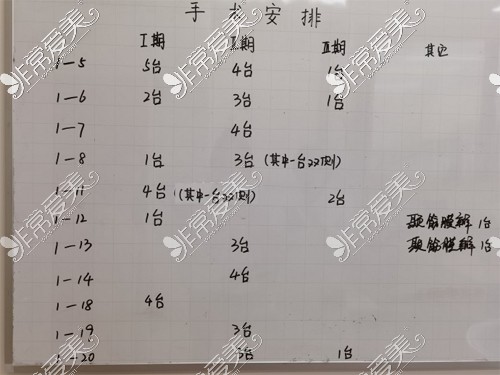 手术安排
I期 II期 III期 其它
1-5 5台 4台 1台
1-6 2台 3台 1台
1-7 4台
1-8 1台 3台(其中一台双侧)
1-11 4台(其中一台双侧) 2台
1-12 1台 取俗膜瓣 1台
1-13 3台 1台
1-14 4台
1-18 4台
1-19 3台
1-20 3台 1台
非常爱美